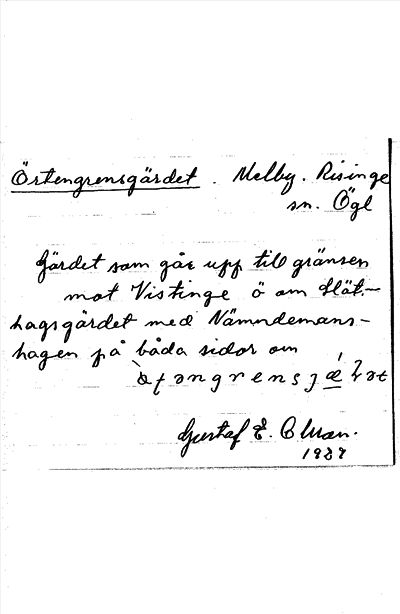 Örtengrensgärdet. Melby. Risinge
sn. Ögl
Gärdet som går upp till gränsen
mot Vistinge ö om Slät-
hagsgärdet med Nämndemans-
hagen på båda sidor om
Gustaf E. Olson.
1939